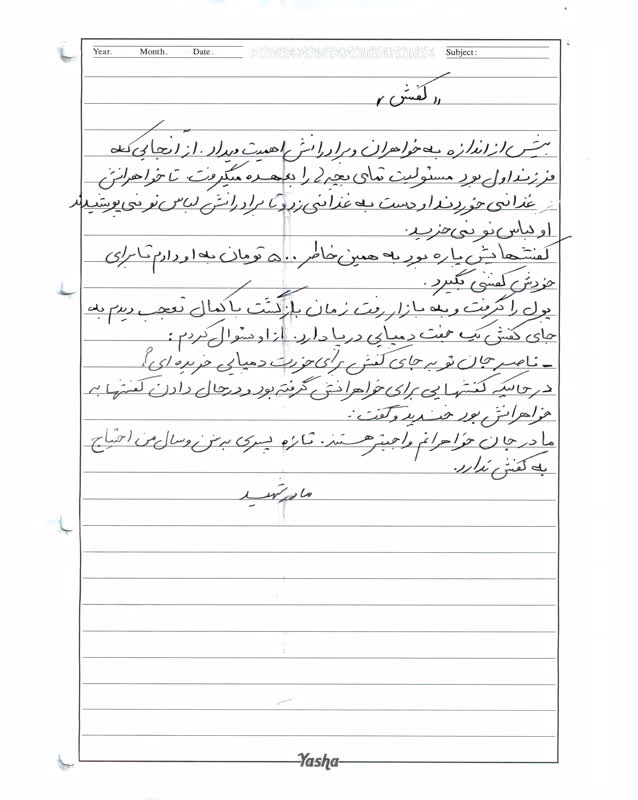 Year. Month. Date. Subject:
« کفش »
بیش از اندازه به خواهران و برادرانش اهمیت میداد. از آنجایی که
فرزند اول بود مسئولیت تمامی بچه ها را به عهده میگرفت تا خواهرانش
غذا نمی خوردند او دست به غذا نمی زد و تا برادرانش لباس نو نمی پوشیدند
او لباس نو نمی خرید.
کفشهایش پاره بود به همین خاطر ۵۰۰ تومان به او دادم تا برای
خودش کفشی بگیرد.
پول را گرفت و به بازار رفت زمان بازگشت با کمال تعجب دیدم به
جای کفش یک جفت دمپایی در پا دارد. از او سئوال کردم:
- ناصر جان تو به جای کفش برای خودت دمپایی خریده ای؟
در حالیکه کفشهایی برای خواهرانش گرفته بود و در حال دادن کفشها به
خواهرانش بود خندید و گفت:
مادر جان خواهرانم واجبتر هستند. تازه پسری به سن و سال من احتیاج
به کفش ندارد.
مادر شهید
Yasha